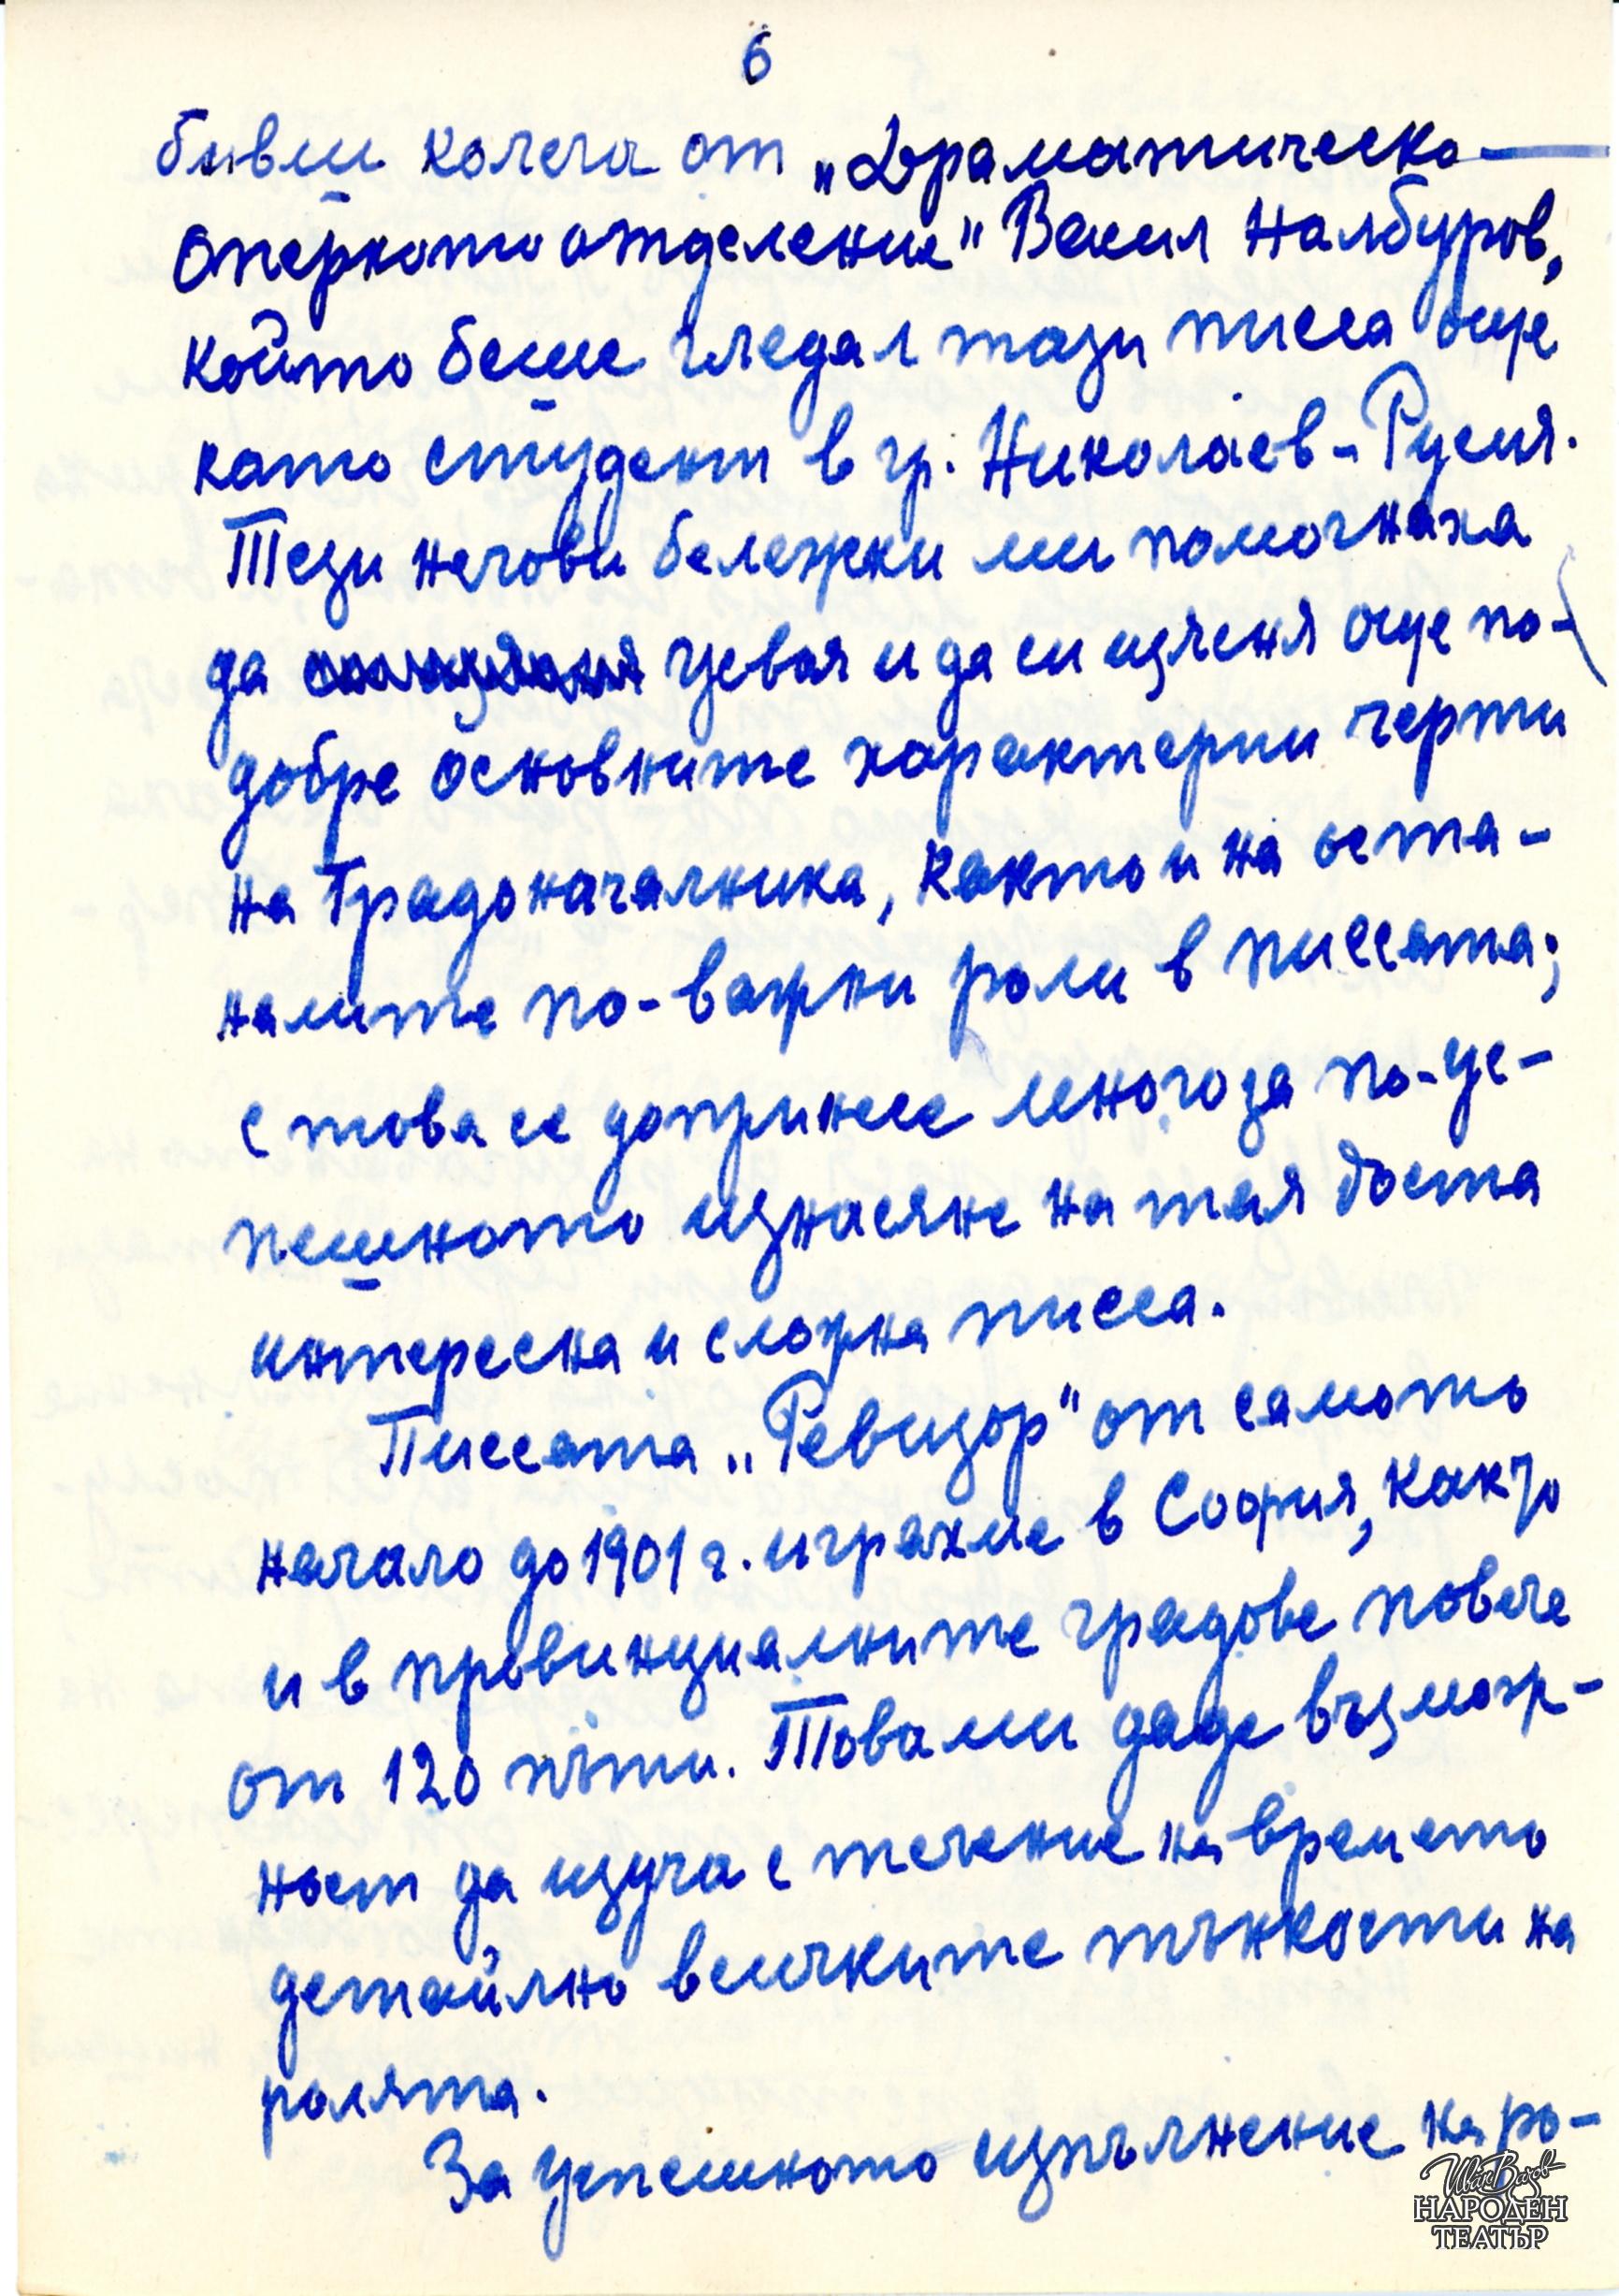 6
бивш колега от „Драматическо-
оперното отделение" Васил Налбуров,
който беше гледал тази пиеса още
като студент в гр. Николаев-Русия.
Тези негови бележки ми помогнаха
да усвоя и да си изясня още по-
добре основните характерни черти
на Градоначалника, както и на оста-
налите по-важни роли в пиесата;
с това се допринесе много за по-ус-
пешното изнасяне на тая доста
интересна и сложна пиеса.
Пиесата „Ревизор" от самото
начало до 1901 г. играхме в София, както
и в провинциалните градове повече
от 120 пъти. Това ми даде възмож-
ност да изуча с течение на времето
детайлно всичките тънкости на
ролята.
За успешното изпълнение на ро-
Иван Вазов
НАРОДЕН
ТЕАТЪР